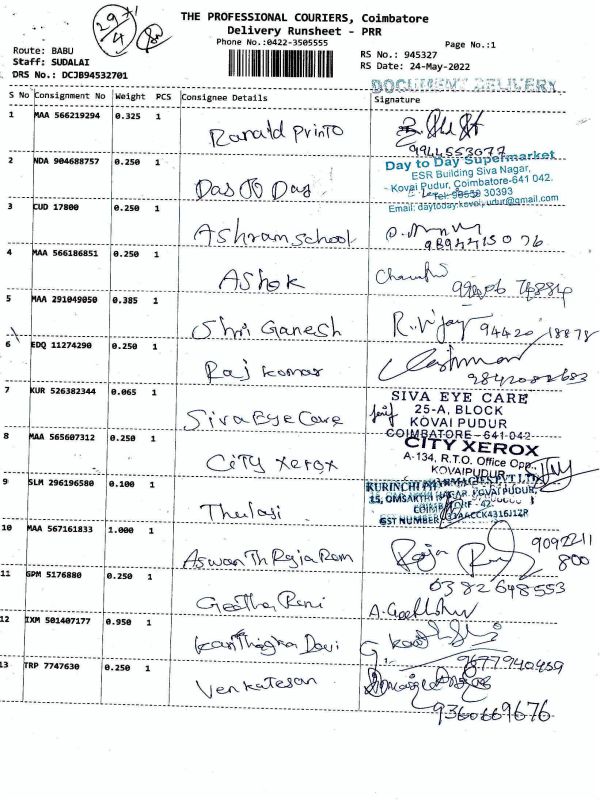 29/4
THE PROFESSIONAL COURIERS, Coimbatore
Delivery Runsheet - PRR
Phone No.:0422-3505555
Page No.:1
Route: BABU
Staff: SUDALAI
DRS No.: DCJB94532701
RS No.: 945327
RS Date: 24-May-2022
DOCUMENT DELIVERY
S No Consignment No Weight PCS Consignee Details Signature
1 MAA 566219294 0.325 1 Ranald Printo
9944553077
2 NDA 904688757 0.250 1 Das To Day
Day to Day Supermarket
ESR Building Siva Nagar,
Kovai Pudur, Coimbatore-641 042.
Tel: 98659 30393
Email: daytodaykovaipudur@gmail.com
3 CUD 17800 0.250 1 Ashram school
9894415076
4 MAA 566186851 0.250 1 Ashok
5 MAA 291049050 0.385 1 Shri Ganesh R. Vijay 94420 18878
6 EDQ 11274290 0.250 1 Raj kumar Lashman
7 KUR 526382344 0.065 1 Siva Eye Care
SIVA EYE CARE
25-A, BLOCK
KOVAI PUDUR
COIMBATORE - 641 042
8 MAA 565607312 0.250 1 City Xerox
CITY XEROX
A-134, R.T.O. Office Opp.,
KOVAIPUDUR
9 SLM 296196580 0.100 1 Thulasi
KURINCHI PHARMACIES PVT LTD
15, OMSAKTHI NAGAR, KOVAI PUDUR,
COIMBATORE - 42.
GST NUMBER : 33AACCK4316J1ZR
10 MAA 567161833 1.000 1 Aswanth Raja Ram Raja 9092211
800
11 GPM 5176880 0.250 1 Geetha Rani
0382648553
12 IXM 501407177 0.950 1 Kanthigha Davi
9677940459
13 TRP 7747630 0.250 1 Venkatesan
9360669676